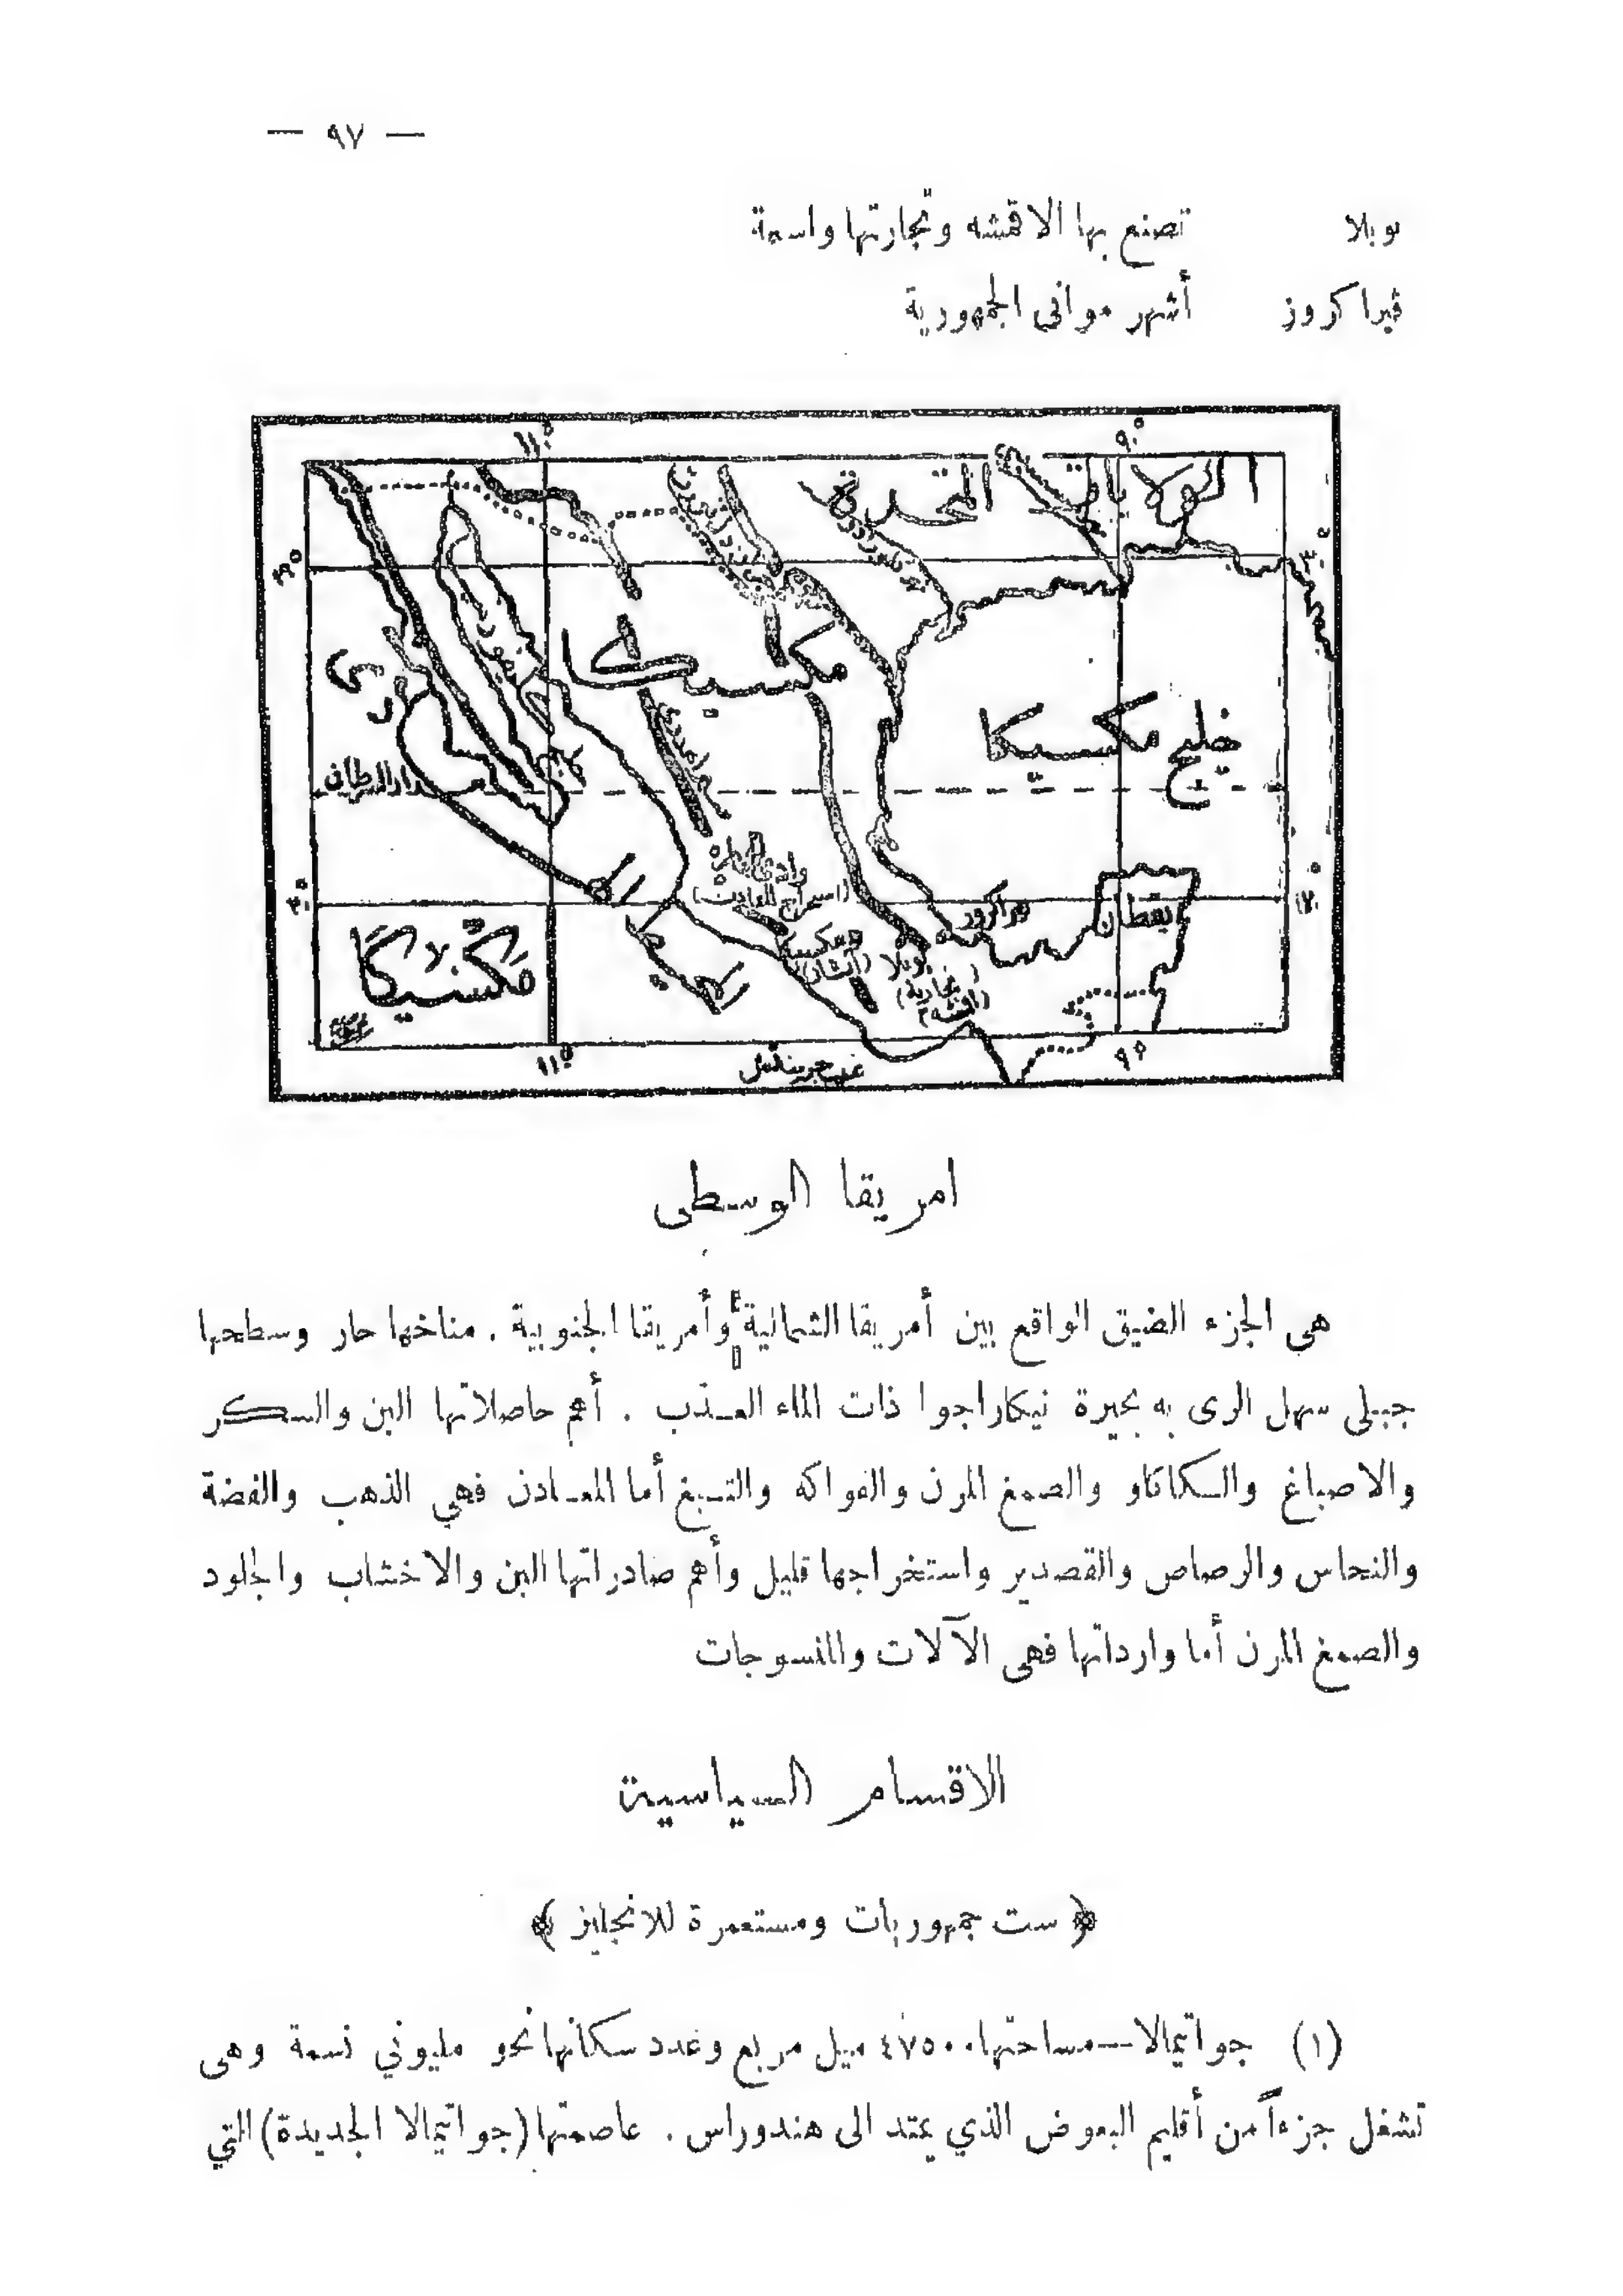 — ٩٧ —
بوبلا تصنع بها الاقمشه وتجارتها واسعة
فيرا كروز أشهر موانى الجمهورية
١١٠° ٩٠°
الولايات المتحدة
٣٠° ٣٠°
مكسيكا
خليج مكسيكا
مدار السرطان
٢٠° ٢٠°
فيراكروز
يقطان
مكسيكا
بوبلا
المحيط
مكسيكا
١١٠° ٩٠°
امريقا الوسطى
هى الجزء الضيق الواقع بين أمريقا الشمالية وأمريقا الجنوبية . مناخها حار وسطحها
جبلى سهل الرى به بحيرة نيكاراجوا ذات الماء العذب . أهم حاصلاتها البن والسكر
والاصباغ والكاكاو والصمغ المرن والفواكه والتبغ أما المعادن فهي الذهب والفضة
والنحاس والرصاص والقصدير واستخراجها قليل وأهم صادراتها البن والاخشاب والجلود
والصمغ المرن أما وارداتها فهى الآلات والمنسوجات
الاقسام السياسية
﴿ ست جمهوريات ومستعمرة للانجليز ﴾
(١) جواتيمالا—مساحتها ٤٧٥٠٠ ميل مربع وعدد سكانها نحو مليوني نسمة وهى
تشغل جزءاً من أقليم البعوض الذي يمتد الى هندوراس . عاصمتها (جواتيمالا الجديدة) التي